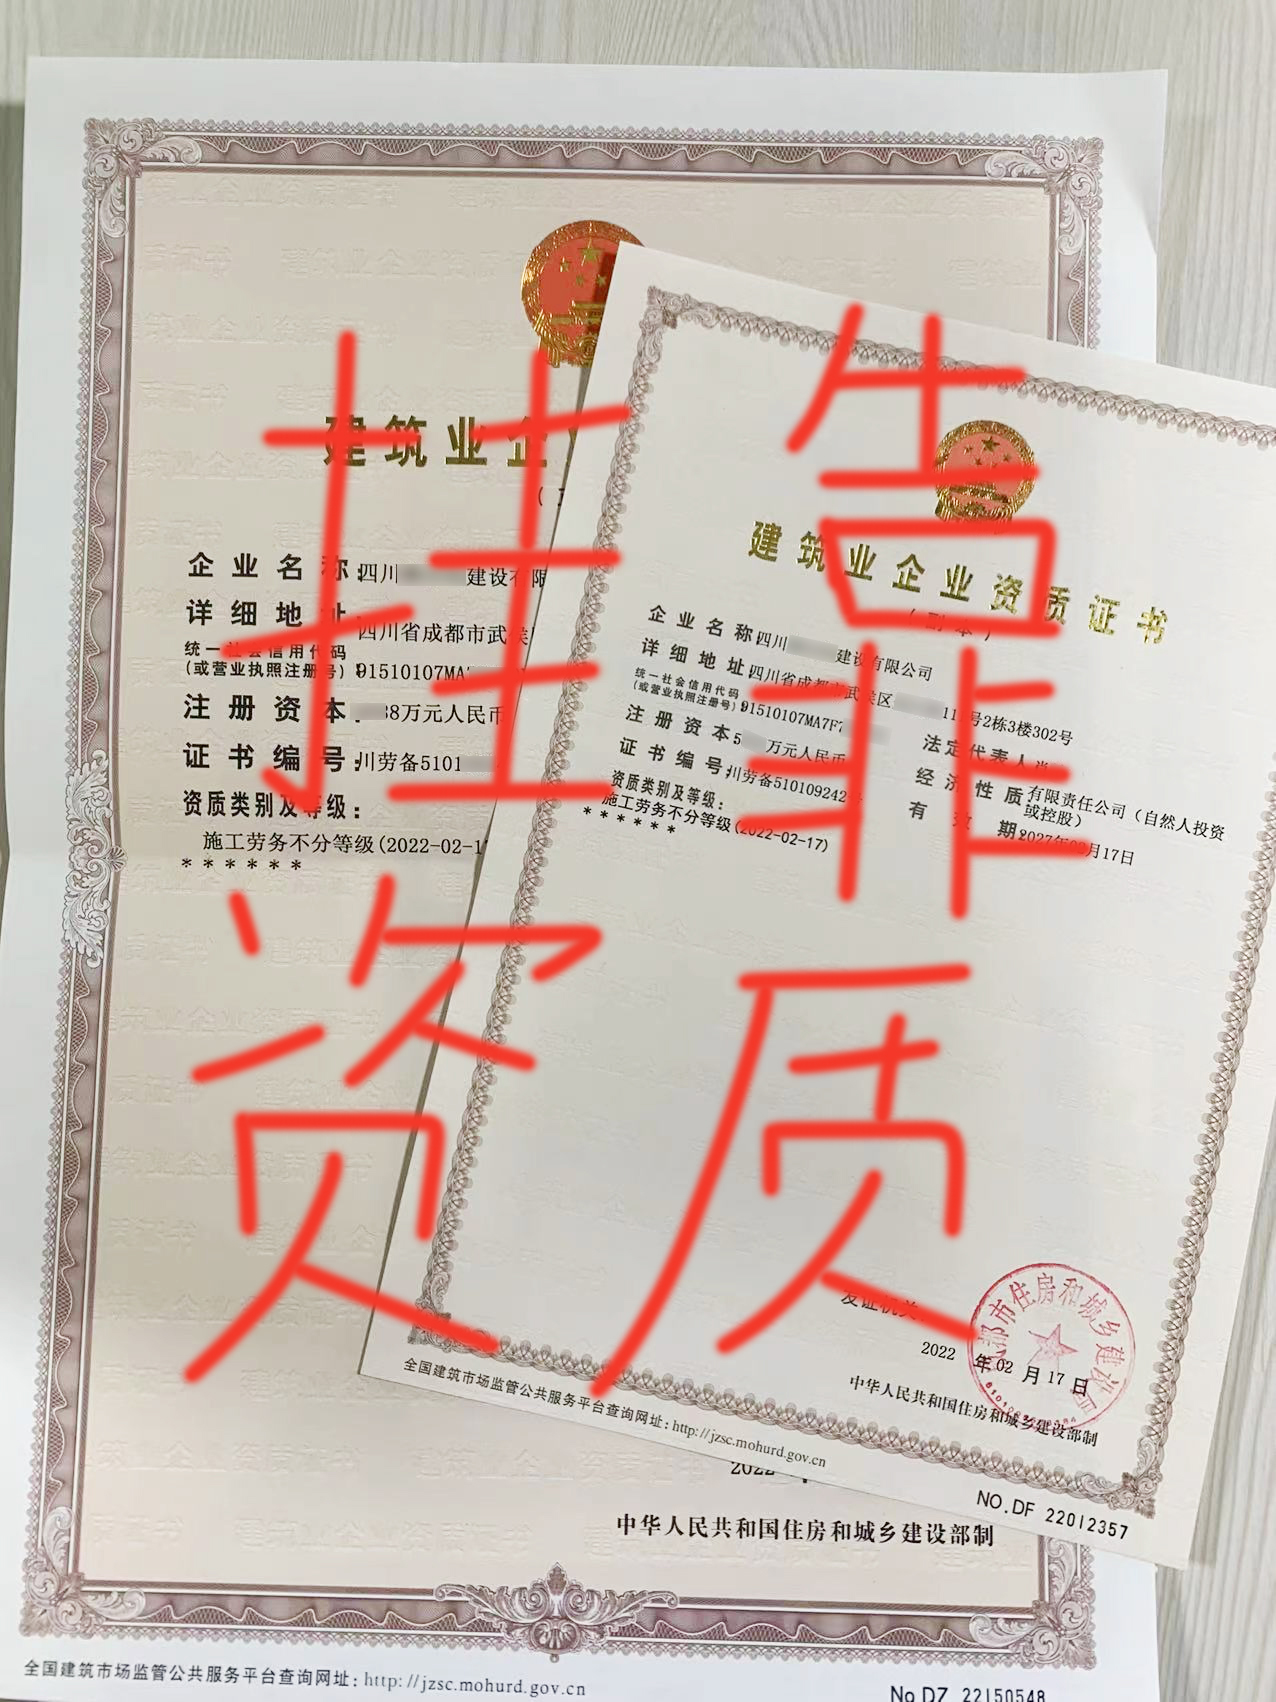 建筑业企
企业名称：四川 建设有限
详细地址：四川省成都市武侯
统一社会信用代码
（或营业执照注册号）：91510107MA7
注册资本： 88万元人民币
证书编号：川劳备5101
资质类别及等级：
施工劳务不分等级(2022-02-17
******
2022
中华人民共和国住房和城乡建设部制
全国建筑市场监管公共服务平台查询网址：http://jzsc.mohurd.gov.cn
No.DZ 22150548
建筑业企业资质证书
（副本）
企业名称：四川 建设有限公司
详细地址：四川省成都市武侯区 11 号2栋3楼302号
统一社会信用代码
（或营业执照注册号）：91510107MA7F
注册资本：5 万元人民币
法定代表人：肖
证书编号：川劳备510109242
经济性质：有限责任公司（自然人投资
或控股）
资质类别及等级：
施工劳务不分等级(2022-02-17)
******
有效期：2027年02月17日
发证机关
2022 年 02 月 17 日
成都市住房和城乡建设局
中华人民共和国住房和城乡建设部制
全国建筑市场监管公共服务平台查询网址：http://jzsc.mohurd.gov.cn
NO.DF 22012357
挂靠
资质